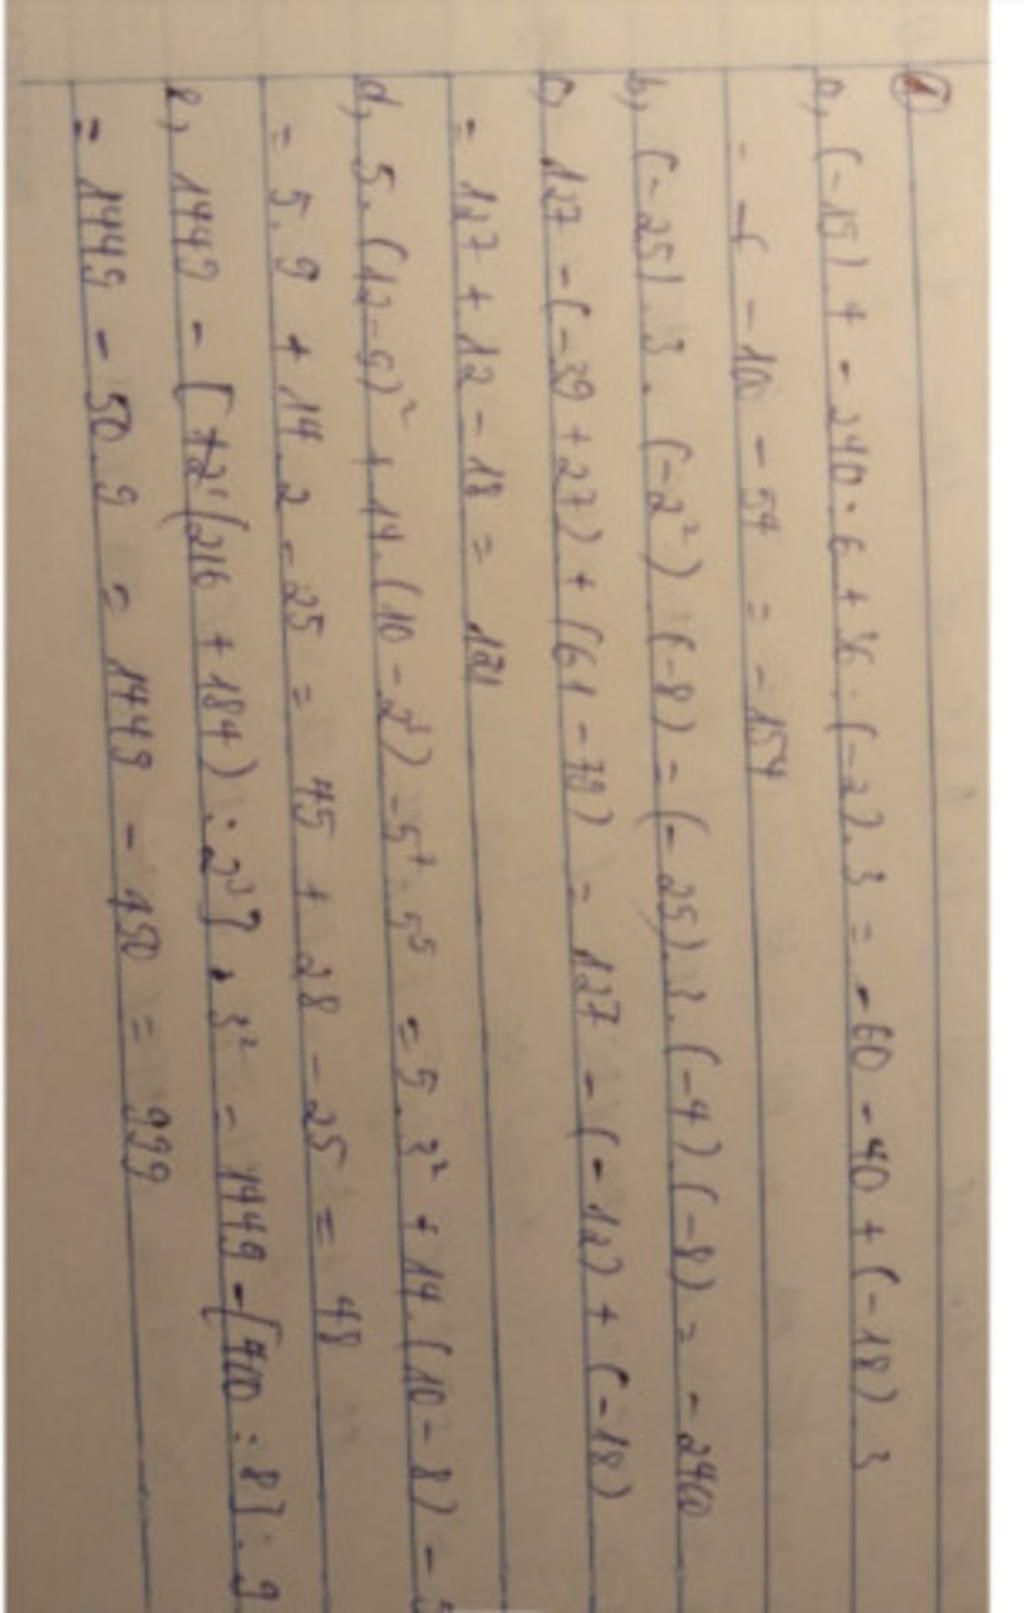 1
a, (-15).4 - 240:6 + 36:(-2).3 = -60 - 40 + (-18).3
= - 100 - 54 = -154
b, (-25).3.(-2²).(-8) = (-25).3.(-4).(-8) = -2400
c, 127 - (-39 + 27) + (61 - 79) = 127 - (-12) + (-18)
= 127 + 12 - 18 = 121
d, 5.(12-9)² + 14.(10 - 2³) - 5⁷:5⁵ = 5.3² + 14.(10 - 8) - 5
= 5.9 + 14.2 - 25 = 45 + 28 - 25 = 48
e, 1449 - [(216 + 184) : 2³].3² = 1449 - [400 : 8].9
= 1449 - 50.9 = 1449 - 450 = 999